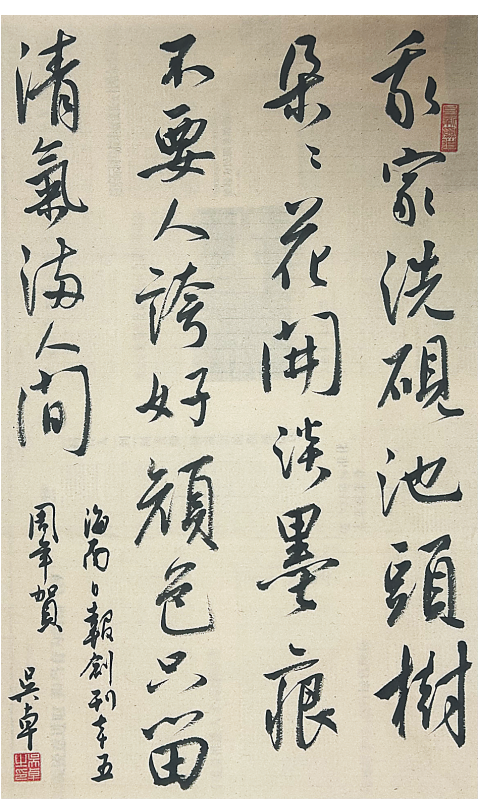 我家洗硯池頭樹
朵〻花開淡墨痕
不要人誇好顔色只留
清氣滿人間
海南日報創刊七十五
周年賀
吳卓